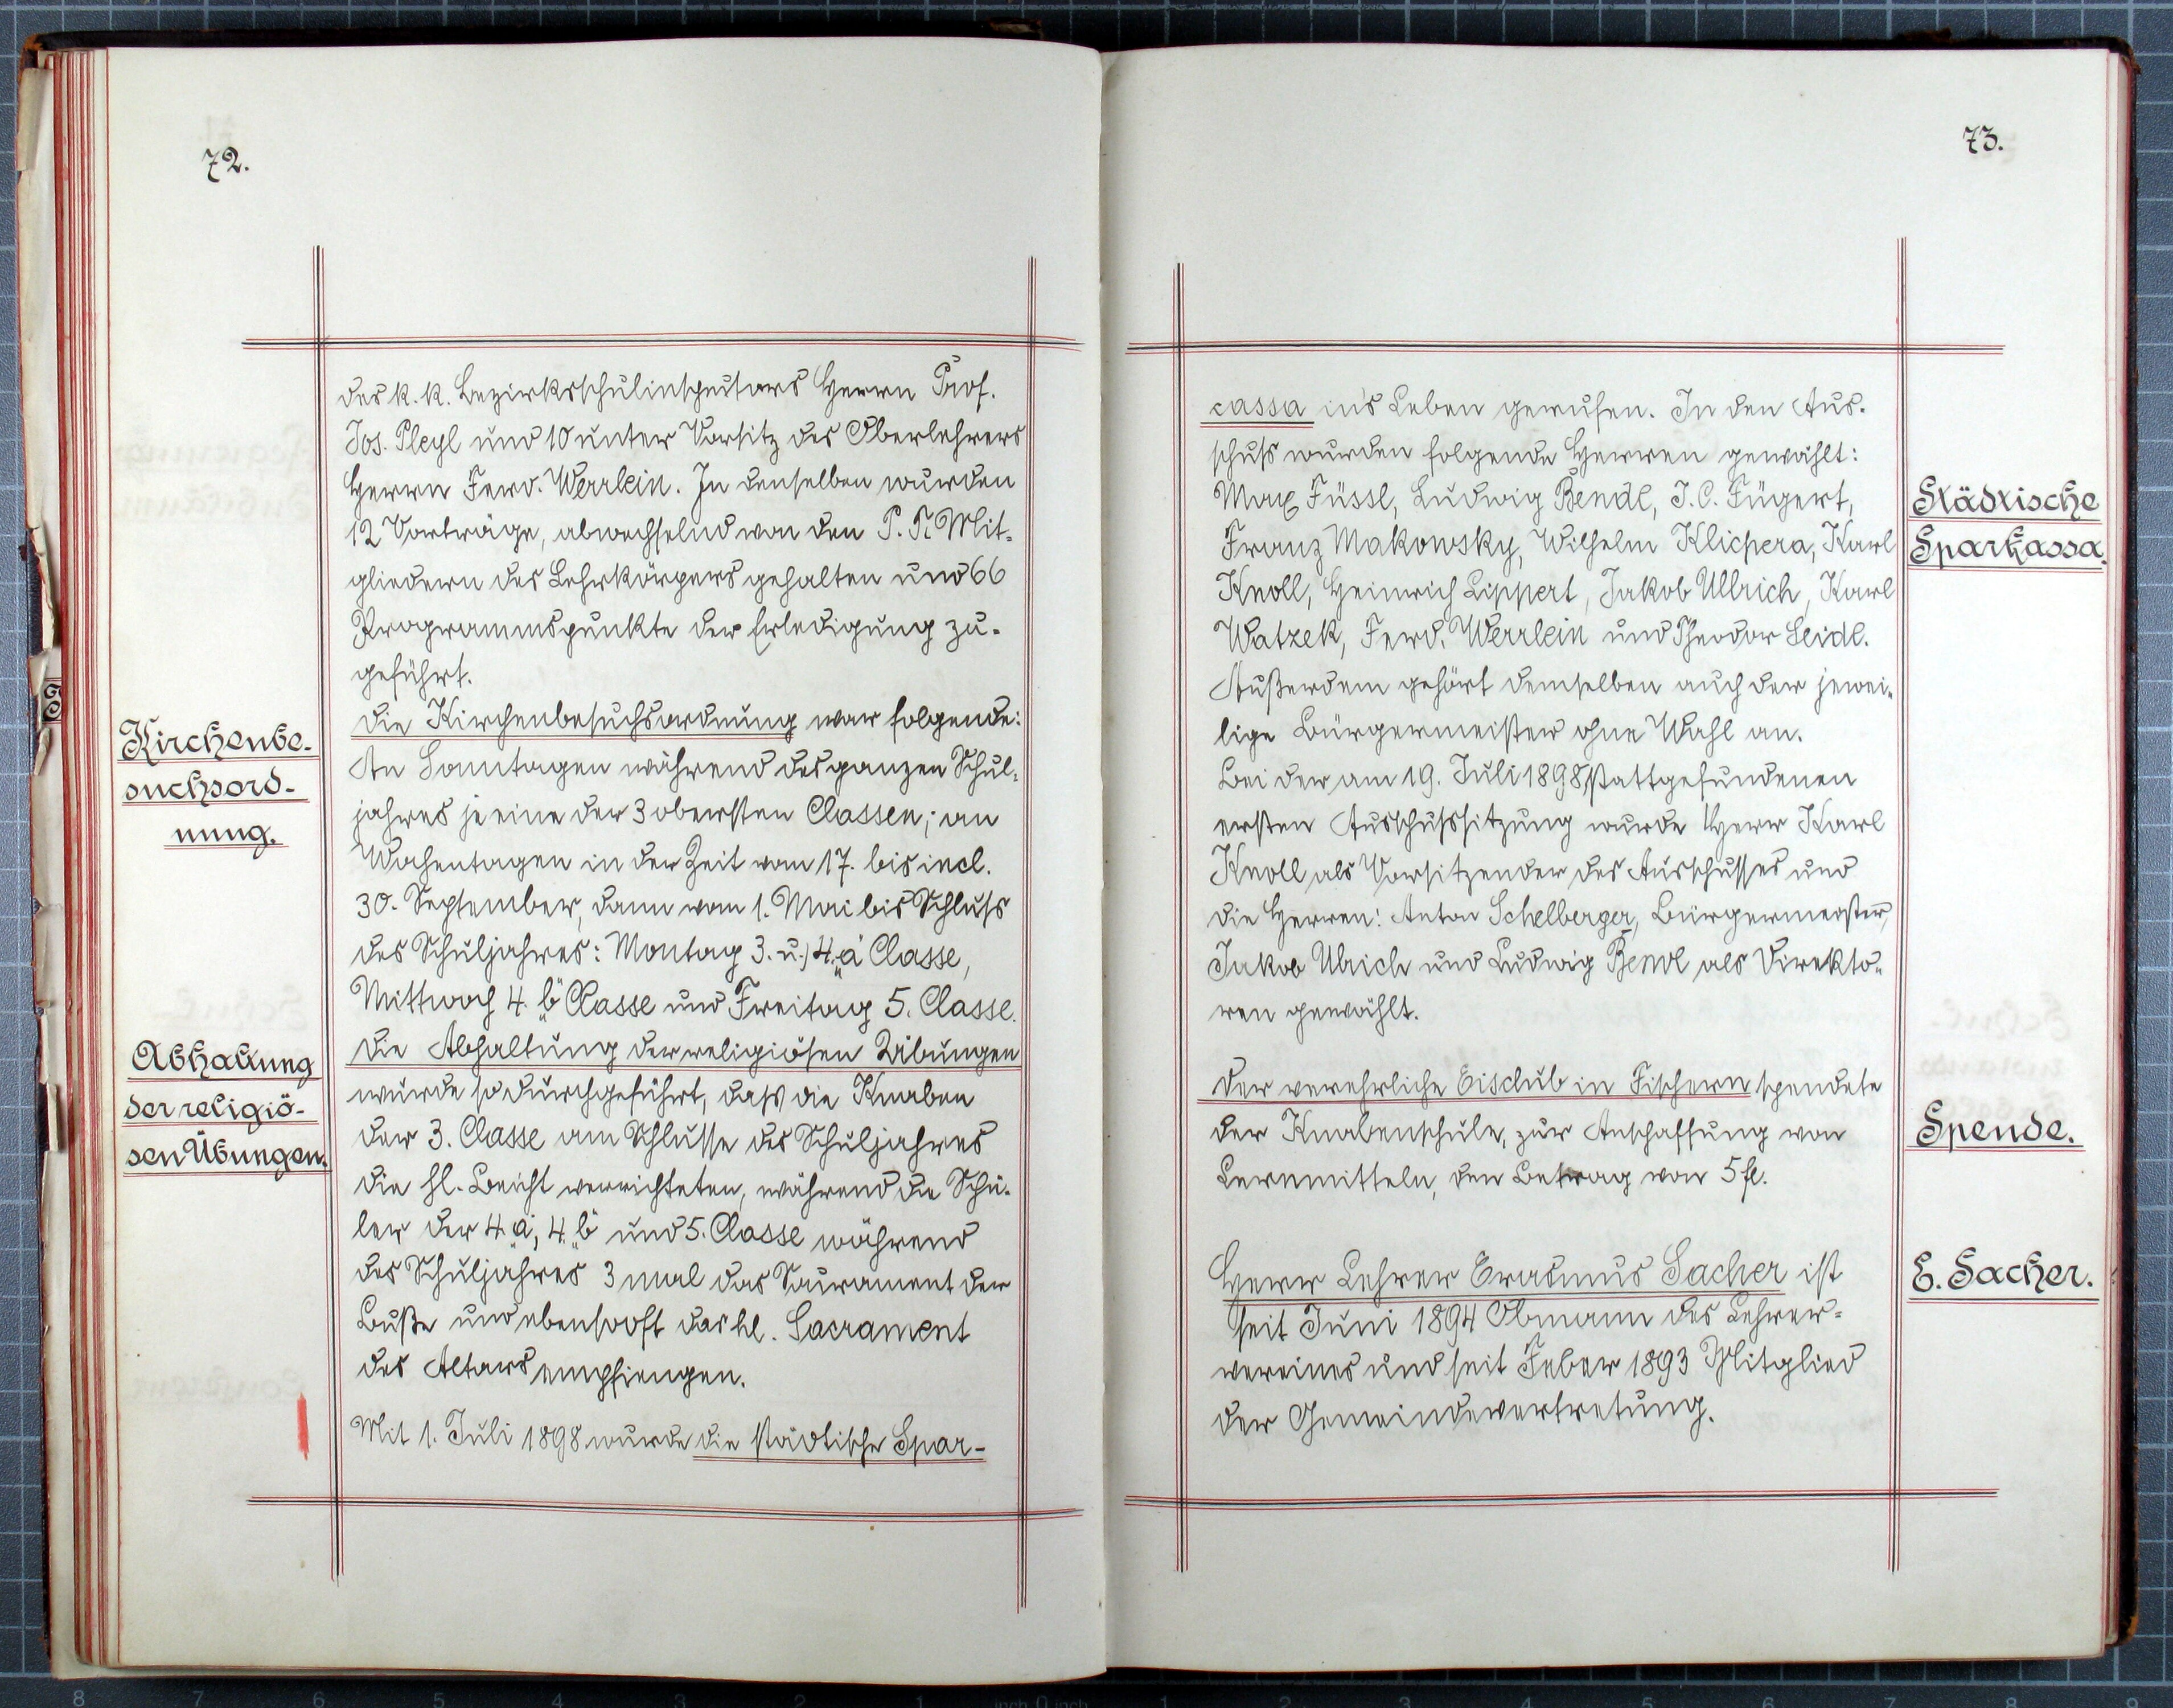 72.
des k. k. Bezirksschulinspectors Herrn Prof.
Jos. Pleyl und 10 unter Vorsitz des Oberlehrers
Herrn Ferd. Werrlein. In denselben wurden
12 Vorträge, abwechselnd von den P. T. Mit-
gliedern des Lehrkörpers gehalten und 66
Programmspunkte der Erledigung zu-
geführt.
Die Kirchenbesuchsordnung war folgende:
An Sonntagen während des ganzen Schul-
jahres je eine der 3 obersten Classen; an
Wochentagen in der Zeit vom 17. bis incl.
30. September, dann vom 1. Mai bis Schluss
des Schuljahres: Montag 3. u. 4. „a“ Classe,
Mittwoch 4. „b“ Classe und Freitag 5. Classe.
Die Abhaltung der religiösen Übungen
wurde so durchgeführt, dass die Knaben
der 3. Classe am Schlusse des Schuljahres
die hl. Beicht verrichteten, während die Schü-
ler der 4. „a“, 4. „b“ und 5. Classe während
des Schuljahres 3 mal das Sacrament der
Buße und ebensooft das hl. Sacrament
des Altars empfiengen.
Mit 1. Juli 1898 wurde die städtische Spar-
Kirchenbe-
suchsord-
nung.
Abhaltung
der religiö-
sen Übungen.
73.
cassa in's Leben gerufen. In den Aus-
schuss wurden folgende Herren gewählt:
Max Füssl, Ludwig Bendl, J. C. Fügert,
Franz Makowsky, Wilhelm Klicpera, Karl
Knoll, Heinrich Lippert, Jakob Ullrich, Karl
Watzek, Ferd. Werrlein und Theodor Seidl.
Außerdem gehört demselben auch der jewei-
lige Bürgermeister ohne Wahl an.
Bei der am 19. Juli 1898 stattgefundenen
ersten Ausschusssitzung wurde Herr Karl
Knoll als Vorsitzender des Ausschusses und
die Herren: Anton Schelberger, Bürgermeister,
Jakob Ulrich und Ludwig Bendl als Direkto-
ren gewählt.
Der verehrliche Eisclub in Fischern spendete
der Knabenschule, zur Anschaffung von
Lernmitteln, den Betrag von 5 fl.
Herr Lehrer Erasmus Sacher ist
seit Juni 1894 Obmann des Lehrer-
vereines und seit Feber 1893 Mitglied
der Gemeindevertretung.
Städtische
Sparkassa.
Spende.
E. Sacher.